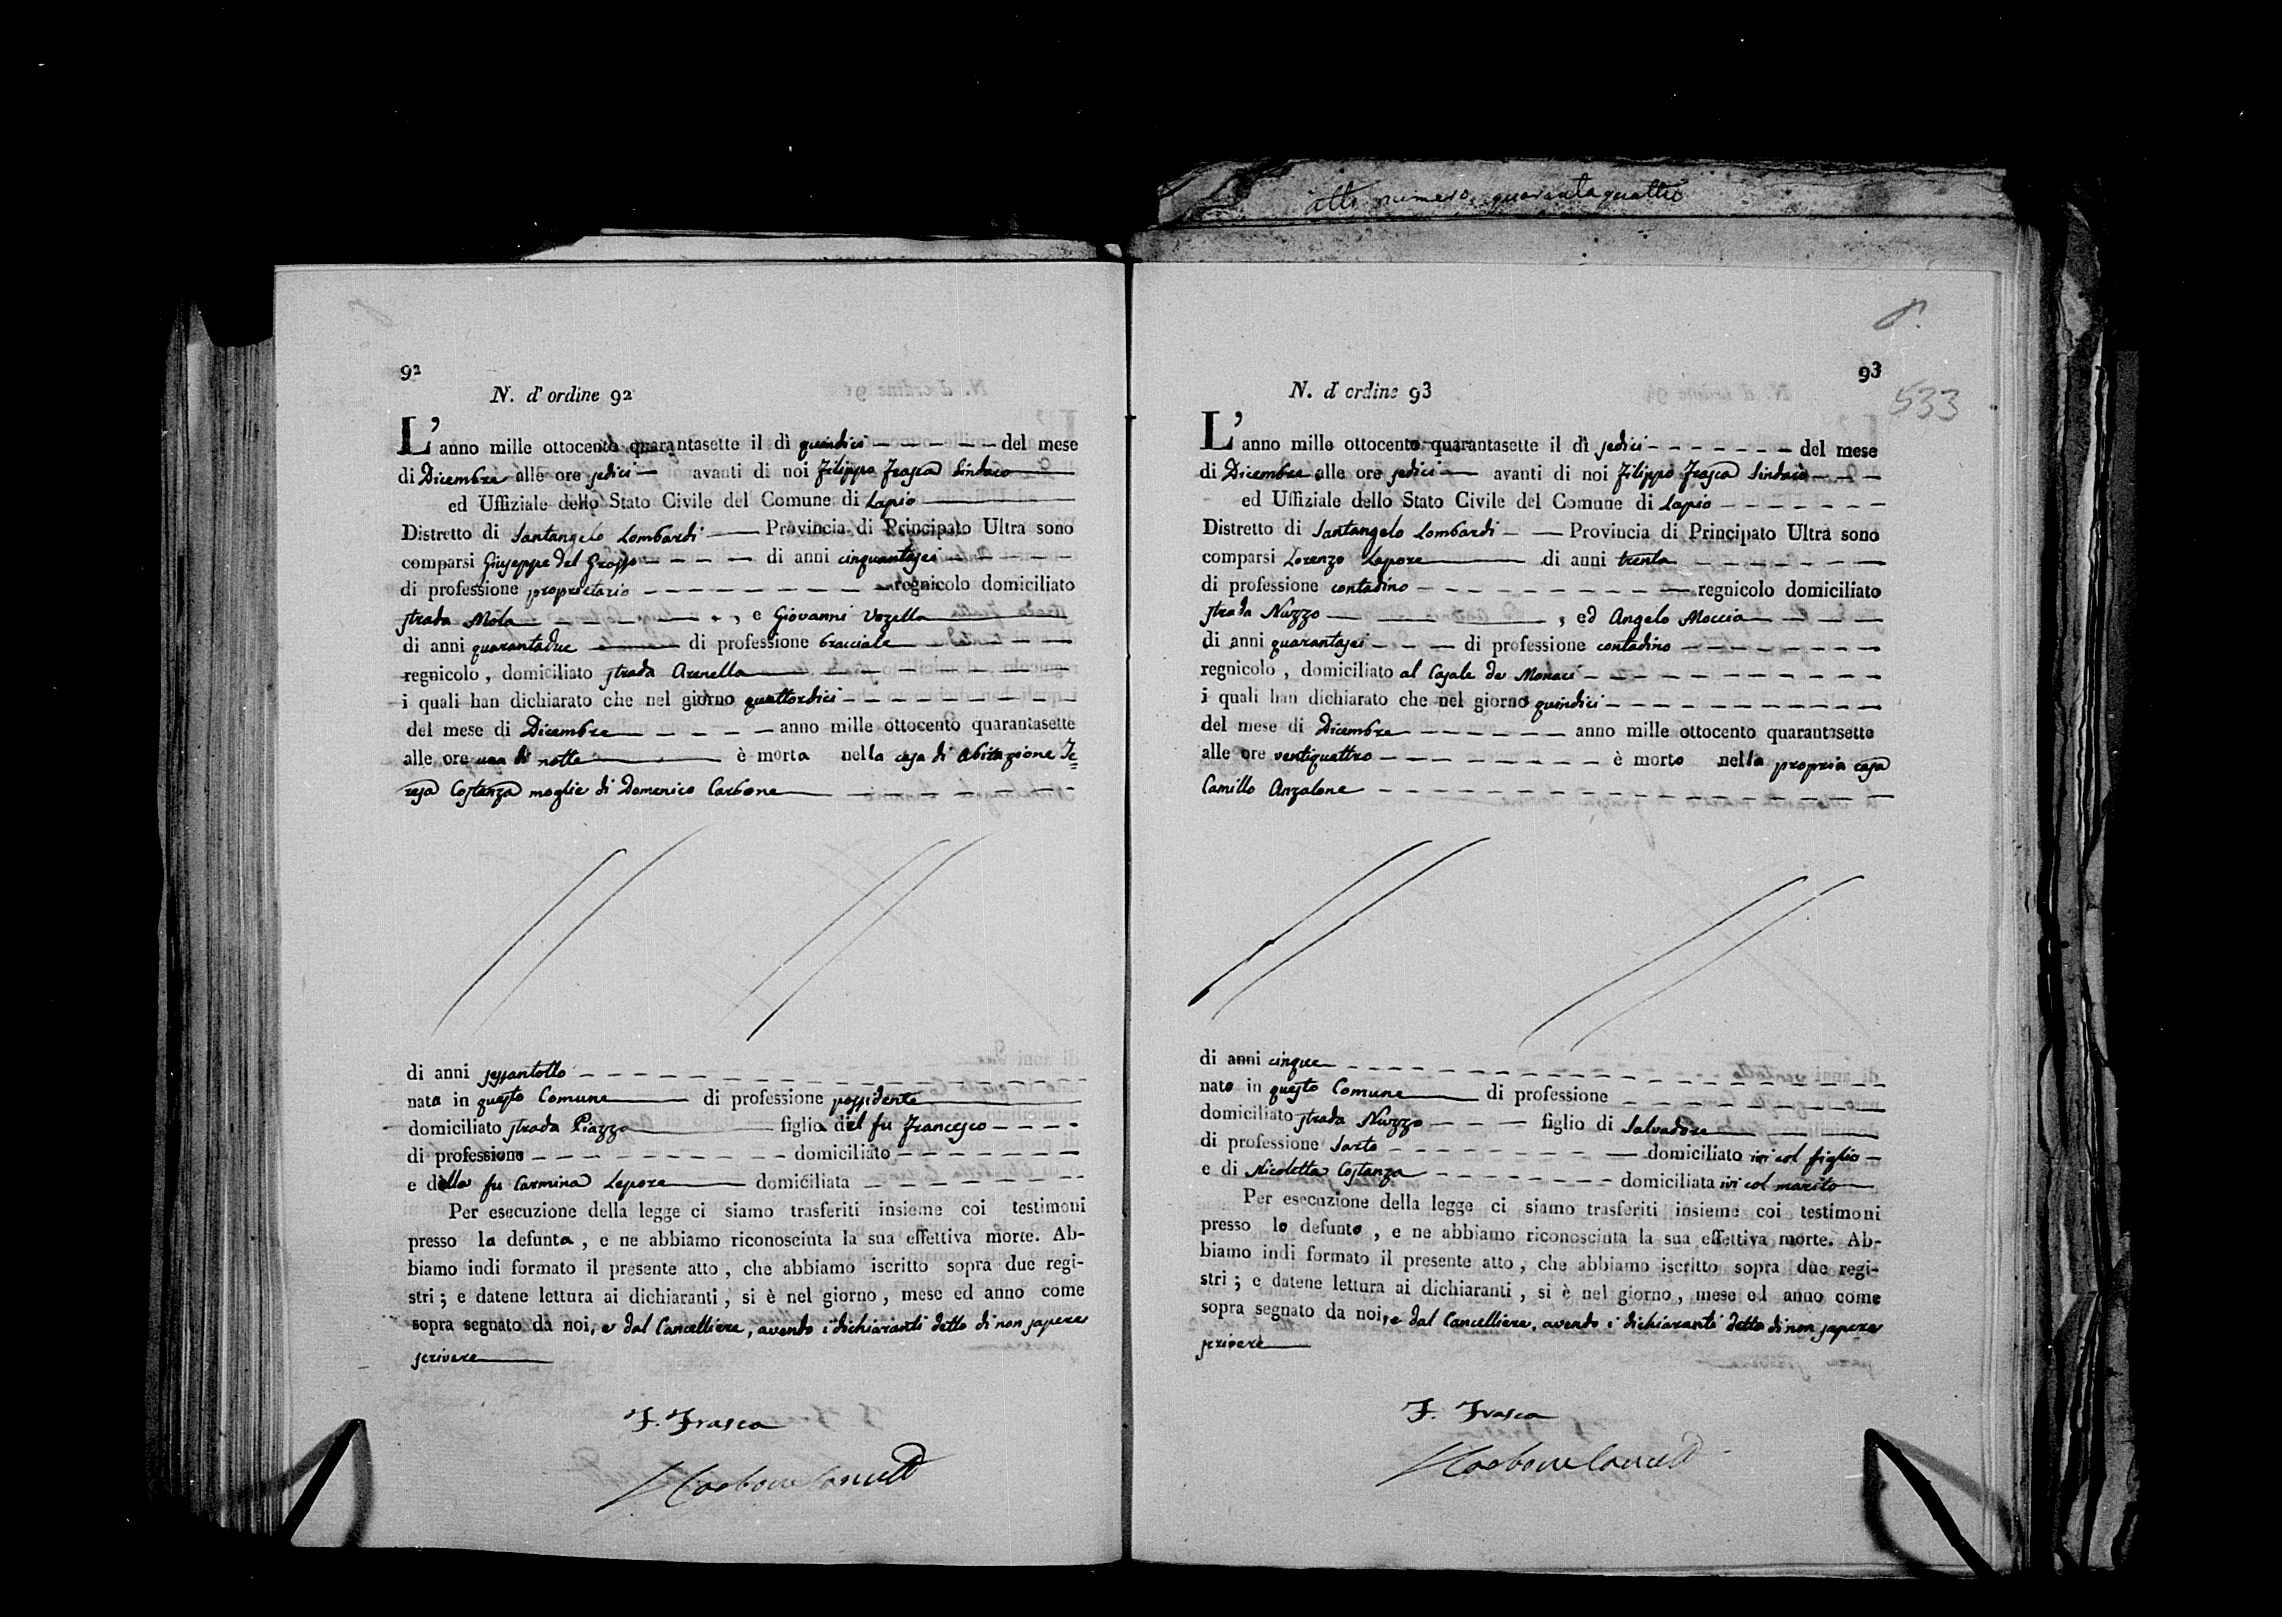 atto numero quarantaquattro
92
N. d' ordine 92
L' anno mille ottocento quarantasette il dì quindici del mese
di Dicembre alle ore sedici avanti di noi Filippo Frasca Sindaco
ed Uffiziale dello Stato Civile del Comune di Lapio
Distretto di Santangelo Lombardi Provincia di Principato Ultra sono
comparsi Giuseppe del Grosso di anni cinquantasei
di professione proprietario regnicolo domiciliato
strada Mola , e Giovanni Vozella
di anni quarantadue di professione bracciale
regnicolo , domiciliato strada Arenella
i quali han dichiarato che nel giorno quattordici
del mese di Dicembre anno mille ottocento quarantasette
alle ore una di notte è morta nella casa di abitazione Te=
resa Costanza moglie di Domenico Carbone
di anni sessantotto
nata in questo Comune di professione possidente
domiciliato strada Piazza figlia del fu Francesco
di professione domiciliato
e della fu Carmina Lepore domiciliata
Per esecuzione della legge ci siamo trasferiti insieme coi testimoni
presso la defunta , e ne abbiamo riconosciuta la sua effettiva morte. Ab-
biamo indi formato il presente atto , che abbiamo iscritto sopra due regi-
stri ; e datene lettura ai dichiaranti , si è nel giorno , mese ed anno come
sopra segnato da noi, e dal Cancelliere, avendo i dichiaranti detto di non sapere
scrivere
F. Frasca
93
533
N. d' ordine 93
L' anno mille ottocento quarantasette il dì sedici del mese
di Dicembre alle ore sedici avanti di noi Filippo Frasca Sindaco
ed Uffiziale dello Stato Civile del Comune di Lapio
Distretto di Santangelo Lombardi Provincia di Principato Ultra sono
comparsi Lorenzo Lepore di anni trenta
di professione contadino regnicolo domiciliato
strada Nuzzo , ed Angelo Moccia
di anni quarantasei di professione contadino
regnicolo , domiciliato al Casale de Monaci
i quali han dichiarato che nel giorno quindici
del mese di Dicembre anno mille ottocento quarantasette
alle ore ventiquattro è morto nella propria casa
Camillo Anzalone
di anni cinque
nato in questo Comune di professione
domiciliato strada Nuzzo figlio di Salvadore
di professione Sarto domiciliato ivi col figlio
e di Nicoletta Costanza domiciliata ivi col marito
Per esecuzione della legge ci siamo trasferiti insieme coi testimoni
presso lo defunto , e ne abbiamo riconosciuta la sua effettiva morte. Ab-
biamo indi formato il presente atto , che abbiamo iscritto sopra due regi-
stri ; e datene lettura ai dichiaranti , si è nel giorno , mese ed anno come
sopra segnato da noi, e dal Cancelliere, avendo i dichiaranti detto di non sapere
scrivere
F. Frasca